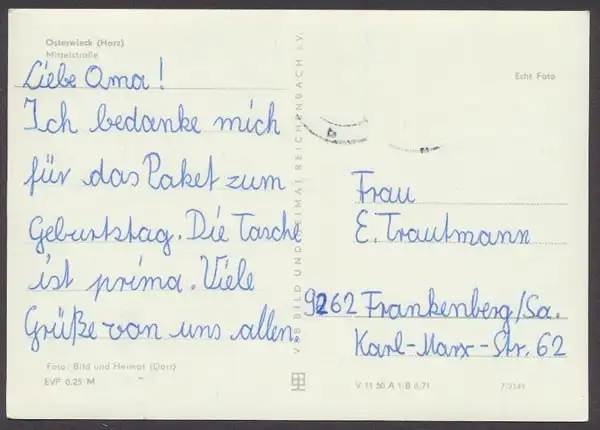 Osterwieck (Harz)
Mittelstraße
Liebe Oma!
Ich bedanke mich
für das Paket zum
Geburtstag. Die Tasche
ist prima. Viele
Grüße von uns allen.
Foto: Bild und Heimat (Darr)
EVP 0,25 M
VEB BILD UND HEIMAT REICHENBACH I. V.
Echt Foto
Frau
E. Trautmann
9262 Frankenberg/Sa.
Karl-Marx-Str. 62
V 11 50 A 1 B 6/71